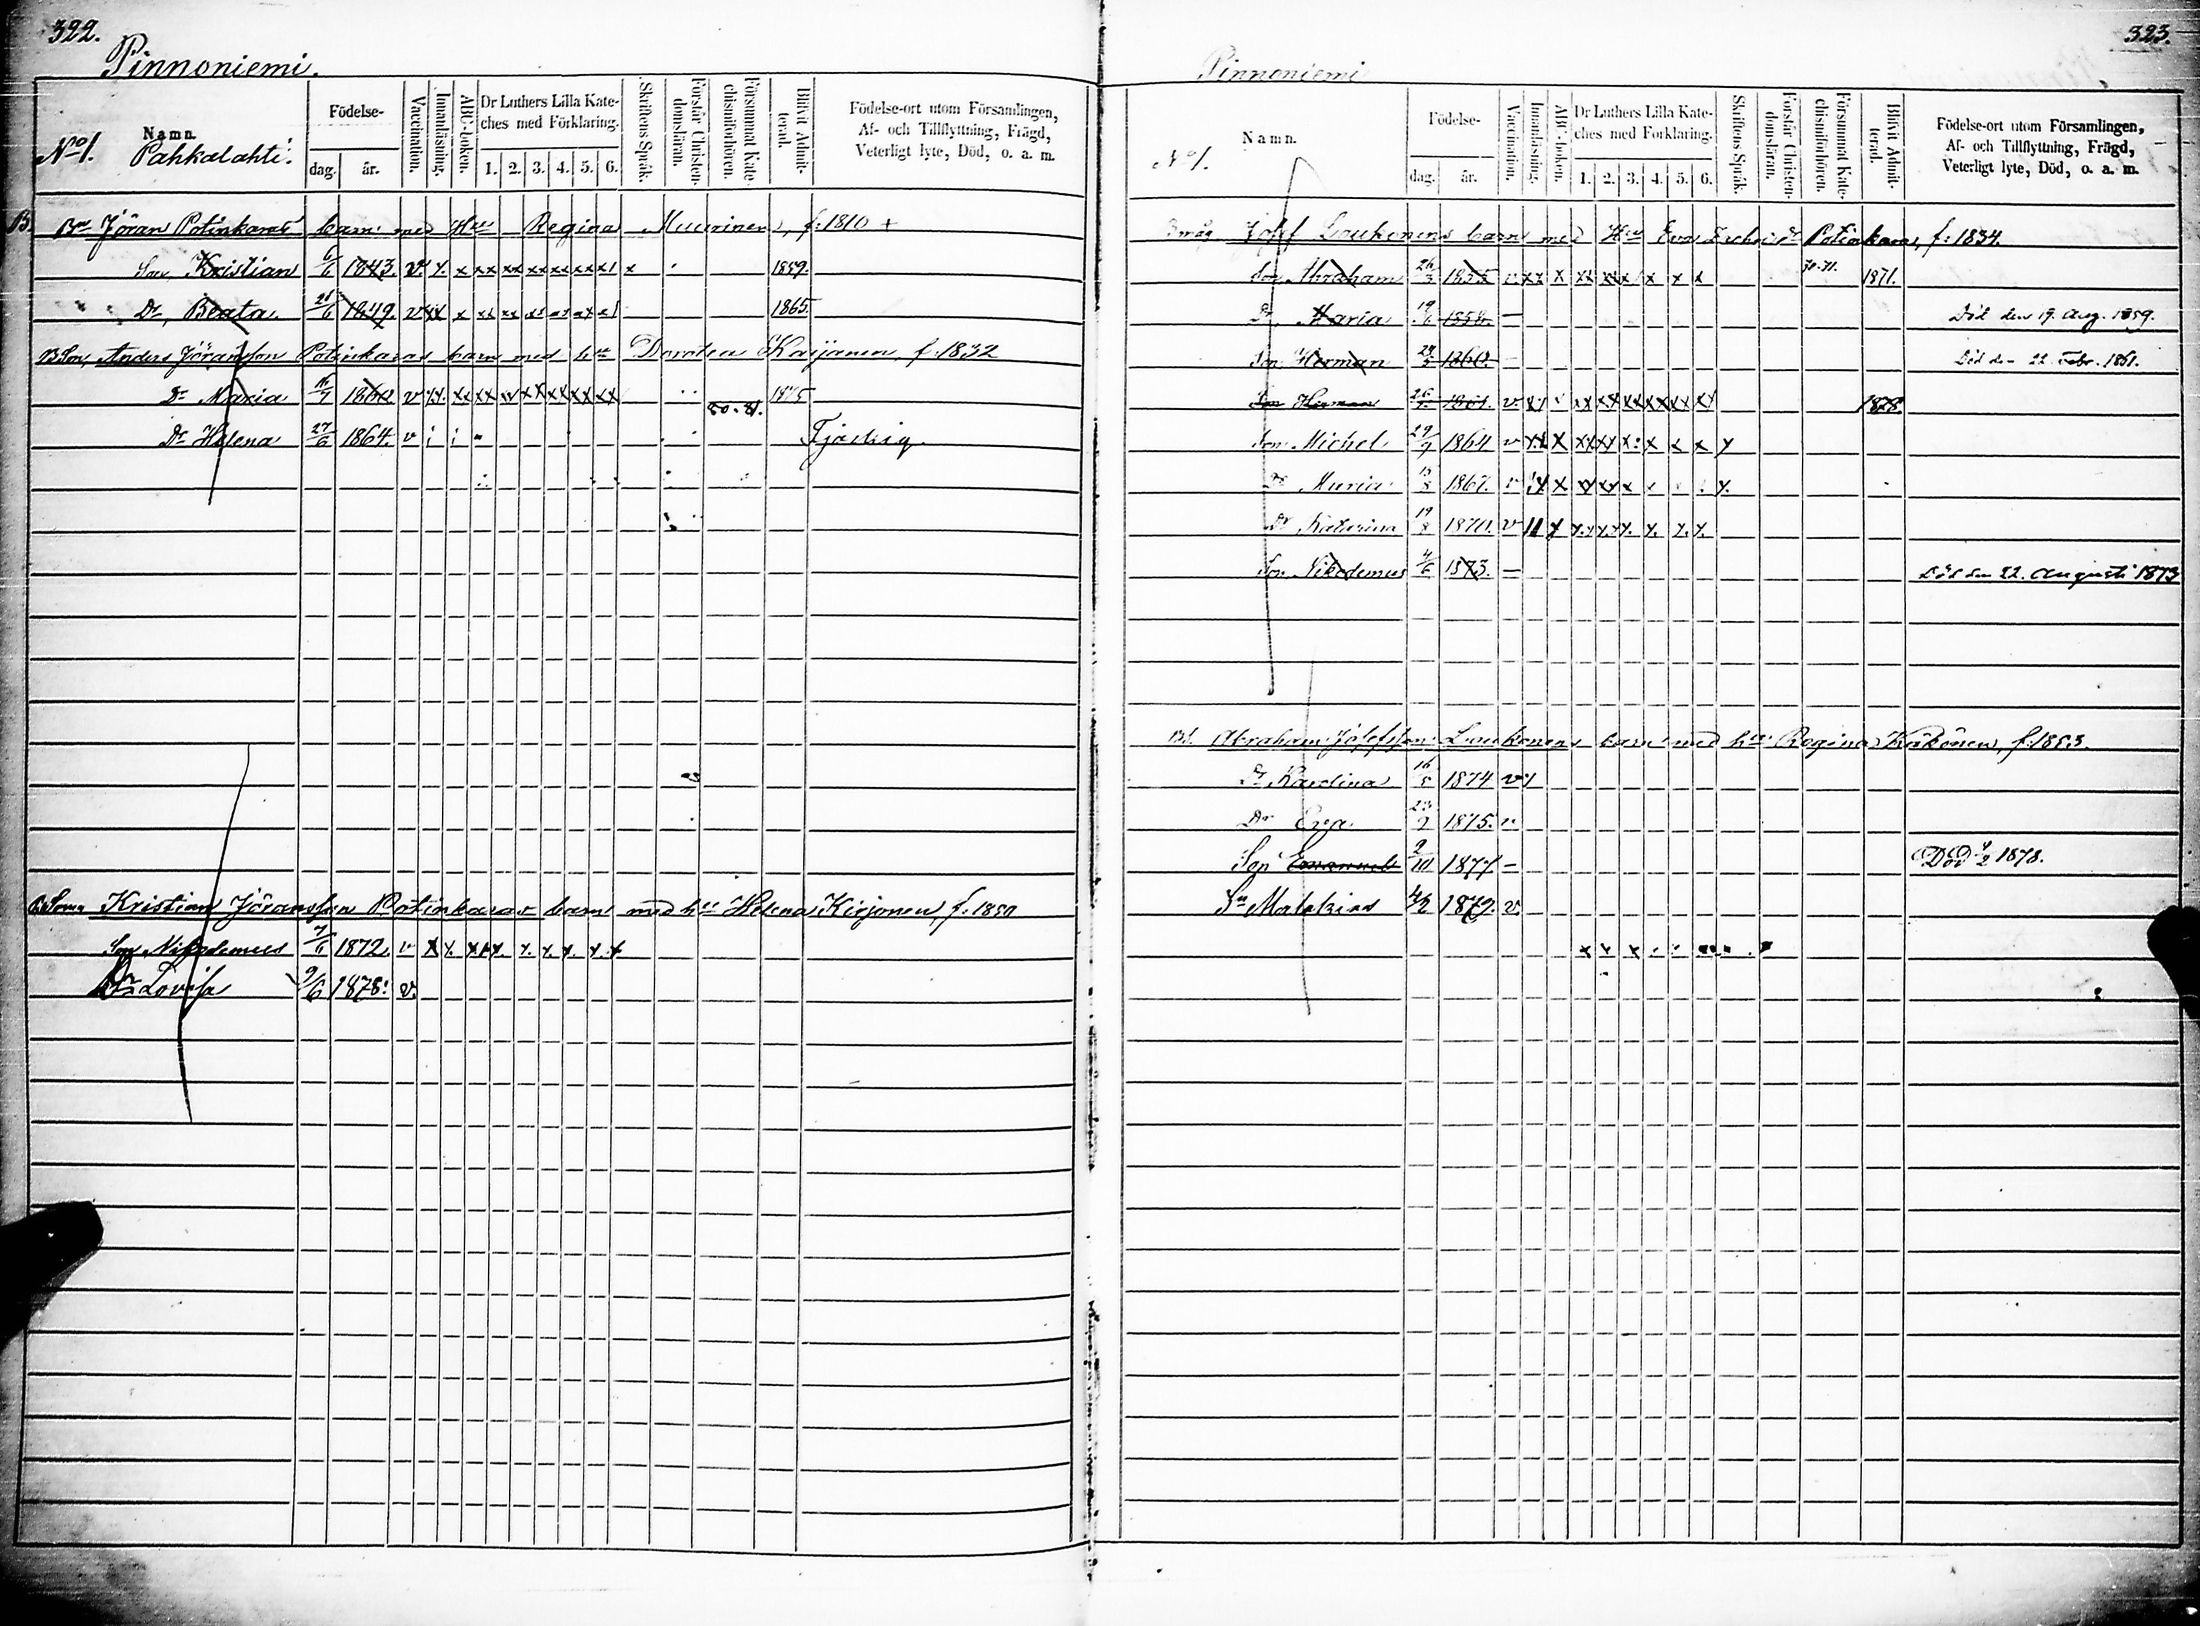 322.
Pinnoniemi.
No 1.
Namn.
Pahkalahti.
Födelse-
dag.
år.
Vaccination.
Innanläsning.
ABC-boken.
Dr Luthers Lilla Kate-
ches med Förklaring.
1. 2. 3. 4. 5. 6.
Skriftens Språk.
Förstår Christen-
domsläran.
Försummat Kate-
chismiförhören.
Blifvit Admit-
terad.
Födelse-ort utom Församlingen,
Af- och Tillflyttning, Frägd,
Veterligt lyte, Död, o. a. m.
B. Bn Jöran Potinkaras barn med Hu Regina Muurinen, f. 1810 +
Son, Kristian 6/6 1843. v. x. x xx xx xx xx xx x x 1859.
Dr, Beata 1849. v xx x xx xx 1865.
B Son, Anders Jöransson Potinkaras barn med hu Dorotea Karjanen, f. 1832
Dr Maria 1860 v xx. xx xx xx xx xx xx xx 80-81. 1875
Dr Helena 27/6 1864. v
B Son Kristian Jöransson Potinkaras barn med hu Helena Kirjonen, f. 1850
Son Nikodemus 7/6 1872. v x x. x x x. x. x. x. x. x
Dr Lovisa 9/6 1878. v.
323.
Pinnoniemi
No 1.
Namn.
Födelse-
dag.
år.
Vaccination.
Innanläsning.
ABC-boken.
Dr Luthers Lilla Kate-
ches med Förklaring.
1. 2. 3. 4. 5. 6.
Skriftens Språk.
Förstår Christen-
domsläran.
Försummat Kate-
chismiförhören.
Blifvit Admit-
terad.
Födelse-ort utom Församlingen,
Af- och Tillflyttning, Frägd,
Veterligt lyte, Död, o. a. m.
Småg Josef Loukonens barn med Hu Eva Potinkara, f. 1834.
Son Abraham 26/3 1855 v. xx x xx xx x x x x 70-71. 1871.
Dr, Maria 19/6 1858. — Död den 19. Aug. 1859.
Son Herman 1860. — Död den 22 Febr. 1861.
Son Herman 1861. v xx xx xx xx xx xx 1878
Son Michel 29/9 1864 v xx x xx xx x x x x x
Dr Maria 1867. v x x xx xx x
Dr Katarina 19/8 1870. v 11 x x. x. x. x. x. x.
Son Nikodemus 4/6 1873. — Död den 22. Augusti 1873
Bl. Abraham Josefsson Loukonens barn med hu Regina Käkönen, f. 1853.
Dr Karolina 16/5 1874 v
Dr Eva 1875. v
Son Emanuel 2/10 1877 — Död 4/2 1878.
Sn Malakias 4/2 1879. v.